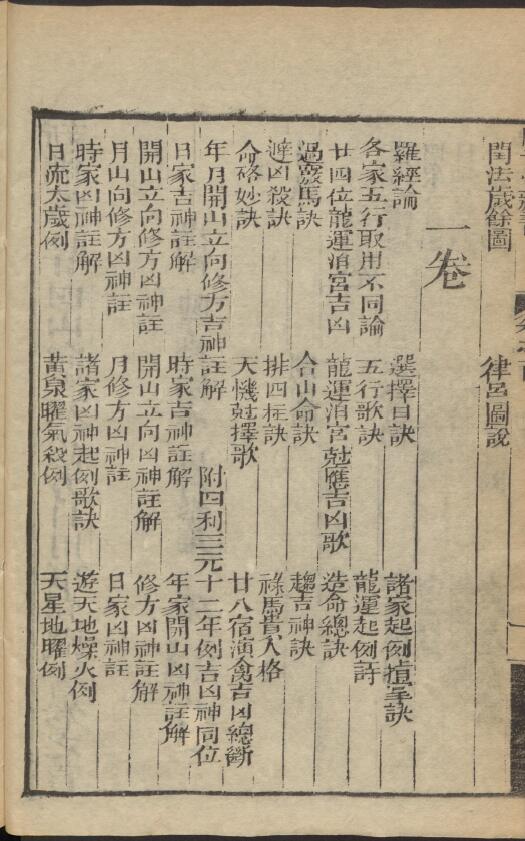 閏法歲餘圖 律呂圖說
一卷
羅經論 選擇日訣 諸家起例掌訣
各家五行取用不同論 五行歌訣 龍運起例詩
廿四位龍運泊宮吉凶 龍運泊宮尅應吉凶歌 造命總訣
馬訣 合山命訣 趨吉神訣
避凶殺訣 排四柱訣 祿馬貴人格
命硌妙訣 天機尅擇歌 廿八宿演禽吉凶總斷
年月開山立向修方吉神註解 附四利三元十二年例吉凶神同位
日家吉神註解 時家吉神註解 年家開山凶神註解
開山立向修方凶神註 開山立向凶神註解 修方凶神註解
月山向修方凶神註 月修方凶神註 日家凶神註
時家凶神註解 諸家凶神起例歌訣 遊天地燥火例
日流太歲例 黃泉曜氣殺例 天星地曜例